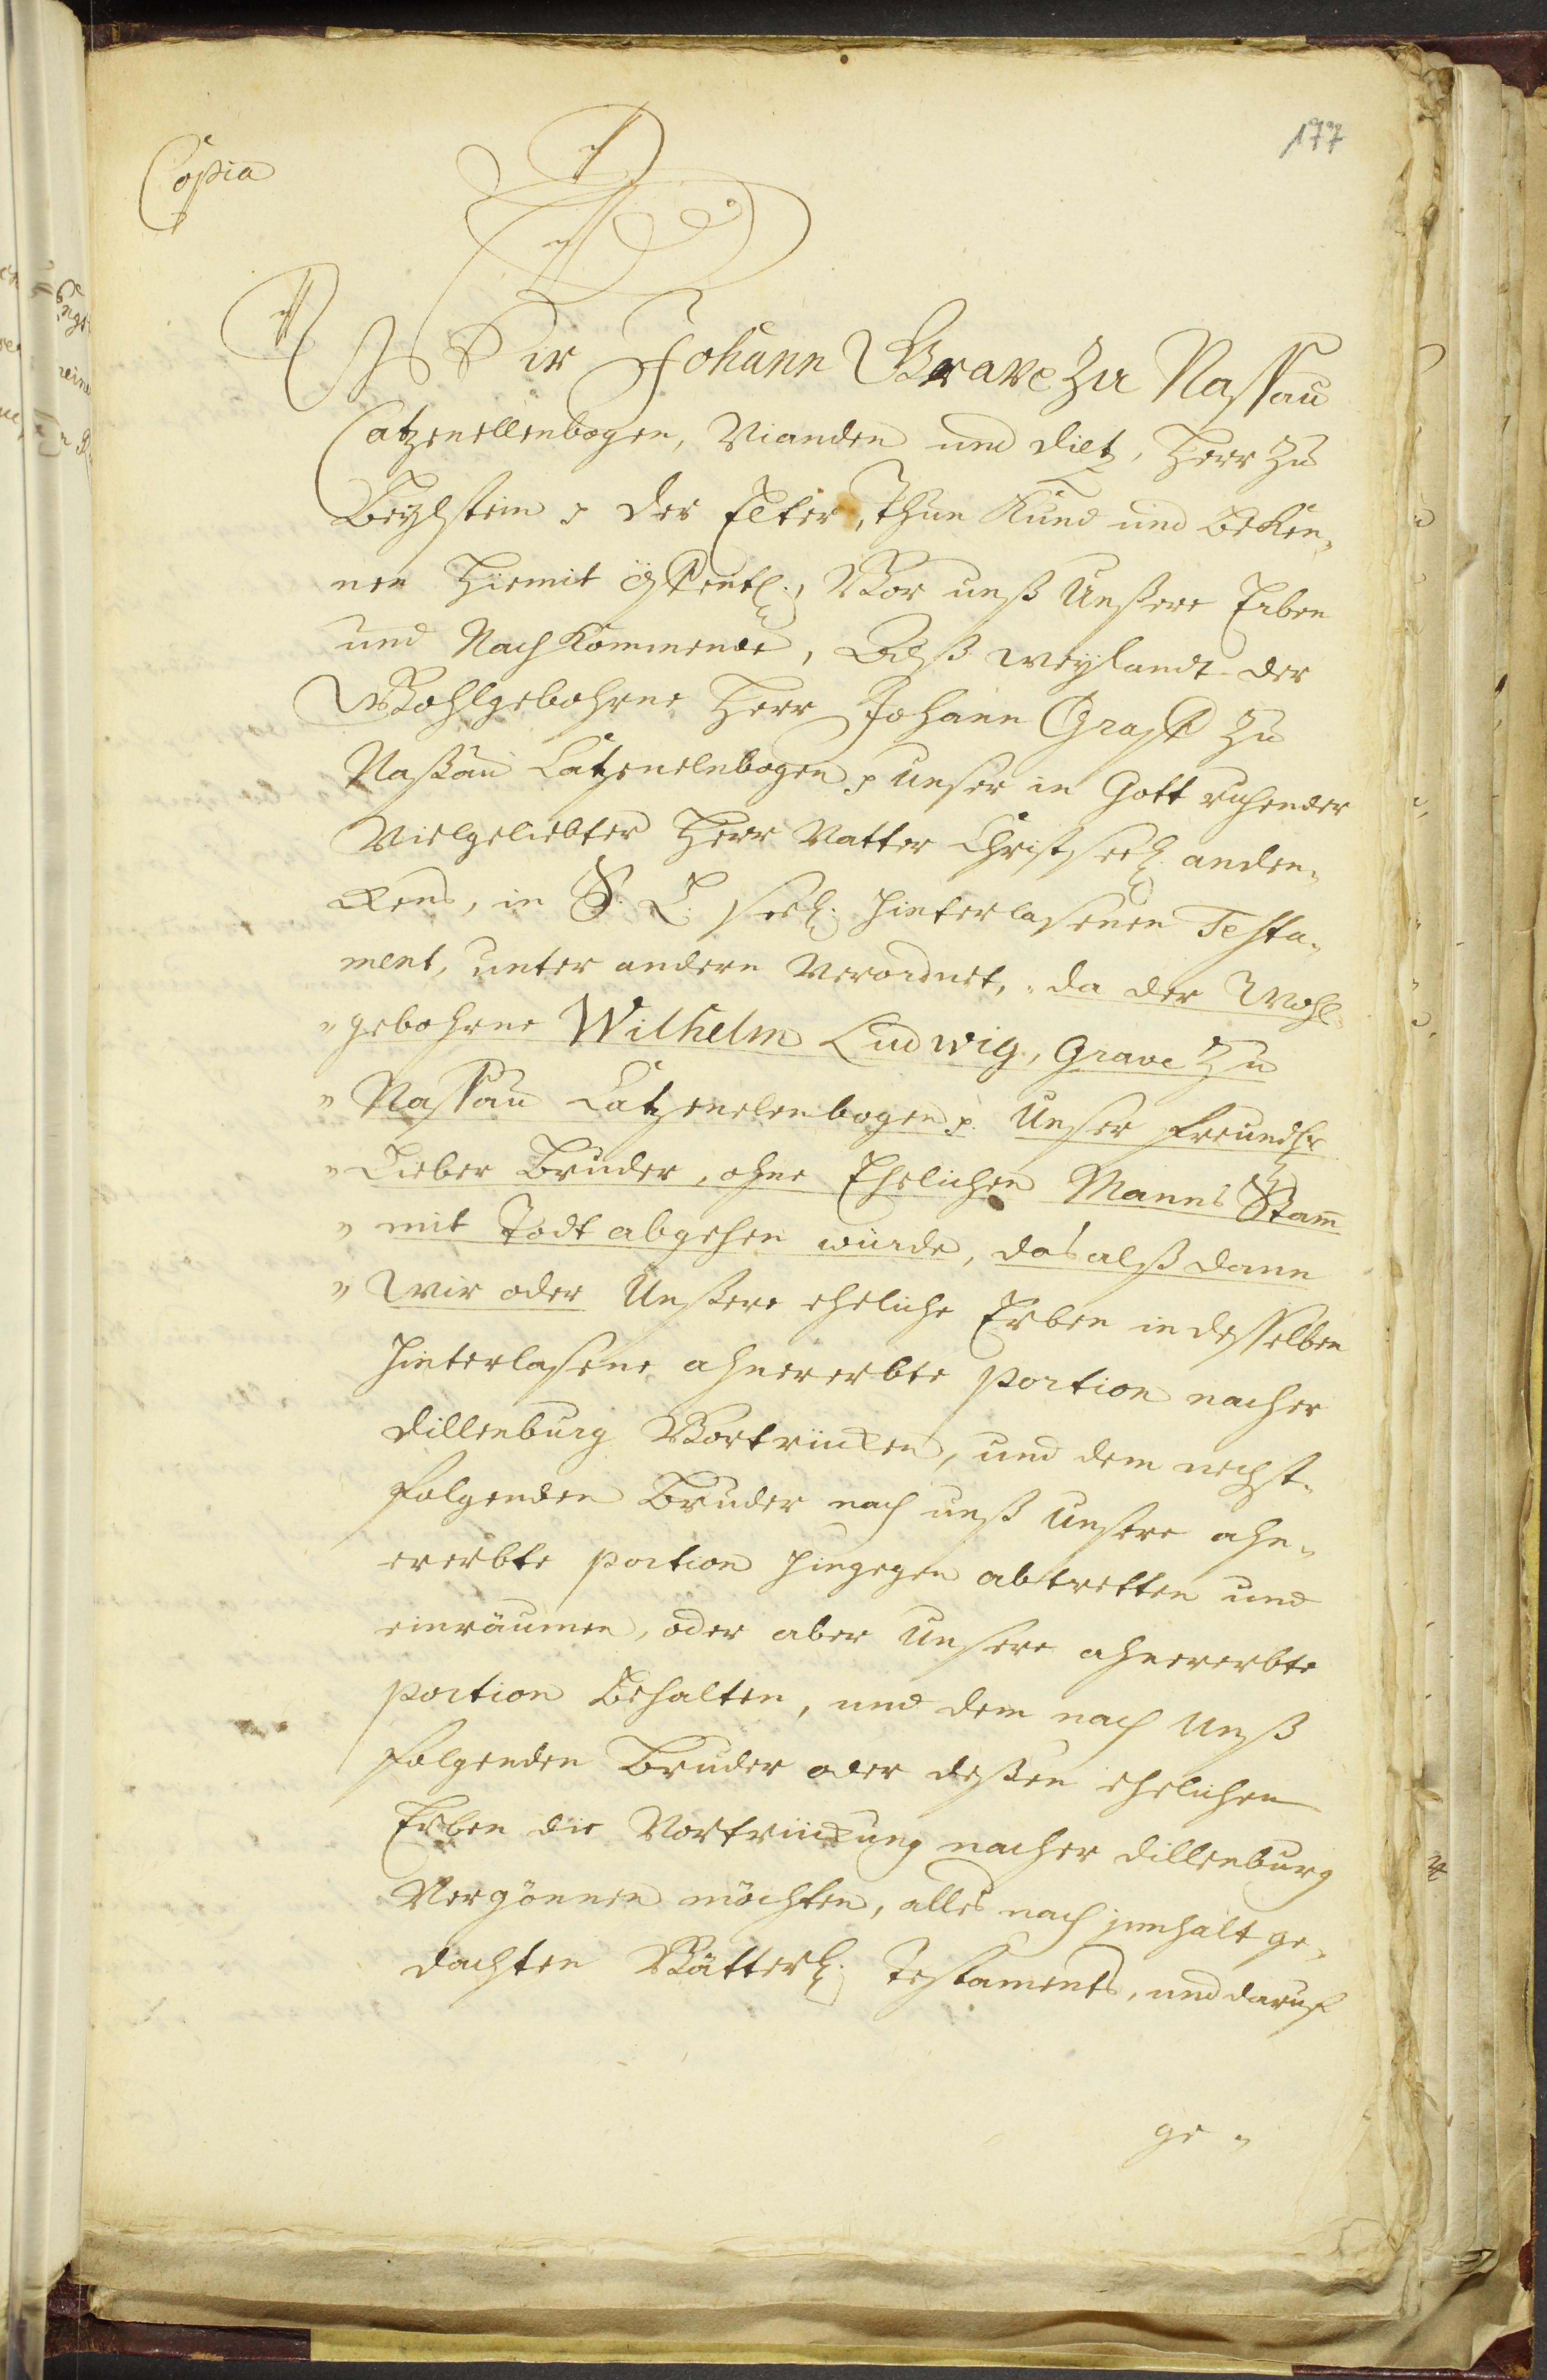 177
Copia
Wir Johann Grave zu Nassau
Catzenellenbogen, Vianden und Dietz, Herr zu
Beÿlstein p der Elter, Thun Kund und Beken„
nen Hiemit öffentl:, Vor unß Unßere Erben
und Nach Kommende, Daß weylandt der
Wohlgebohrne Herr Johann Graff zu
Naßau Catzenelnbogen p unser in Gott ruhender
Vielgeliebter Herr Vatter Christseel: anden„
ckens, in S: L: seel: hinterlasenen Testa„
ment, unter andern Verordnet, „da der Wohl„
„gebohrne Wilhelm Ludwig, Grave zu
„Nassau Catzenelenbogen p. Unser freundlr
„Lieber Bruder, ohne Ehelichen Manns Stam̄
„mit Todt abgehen würde, das alß dann
„Wir oder Unßere eheliche Erben in desselben
hinterlasene ahnererbte Portion nacher
Dillenburg Vortrücken, und dem nechst„
folgenden Bruder nach unß Unsere ahn„
ererbte Portion hingegen abtretten und
einräumen, oder aber Unsere ahnererbte
Portion Behalten, und dem nach Unß
folgenden Bruder oder deßen ehelichen
Erben die Vortrückung nacher Dillenburg
Vergönnen möchten, alles nach jnnhalt ge„
dachten Vätterl: Testaments, und daruf
ge„